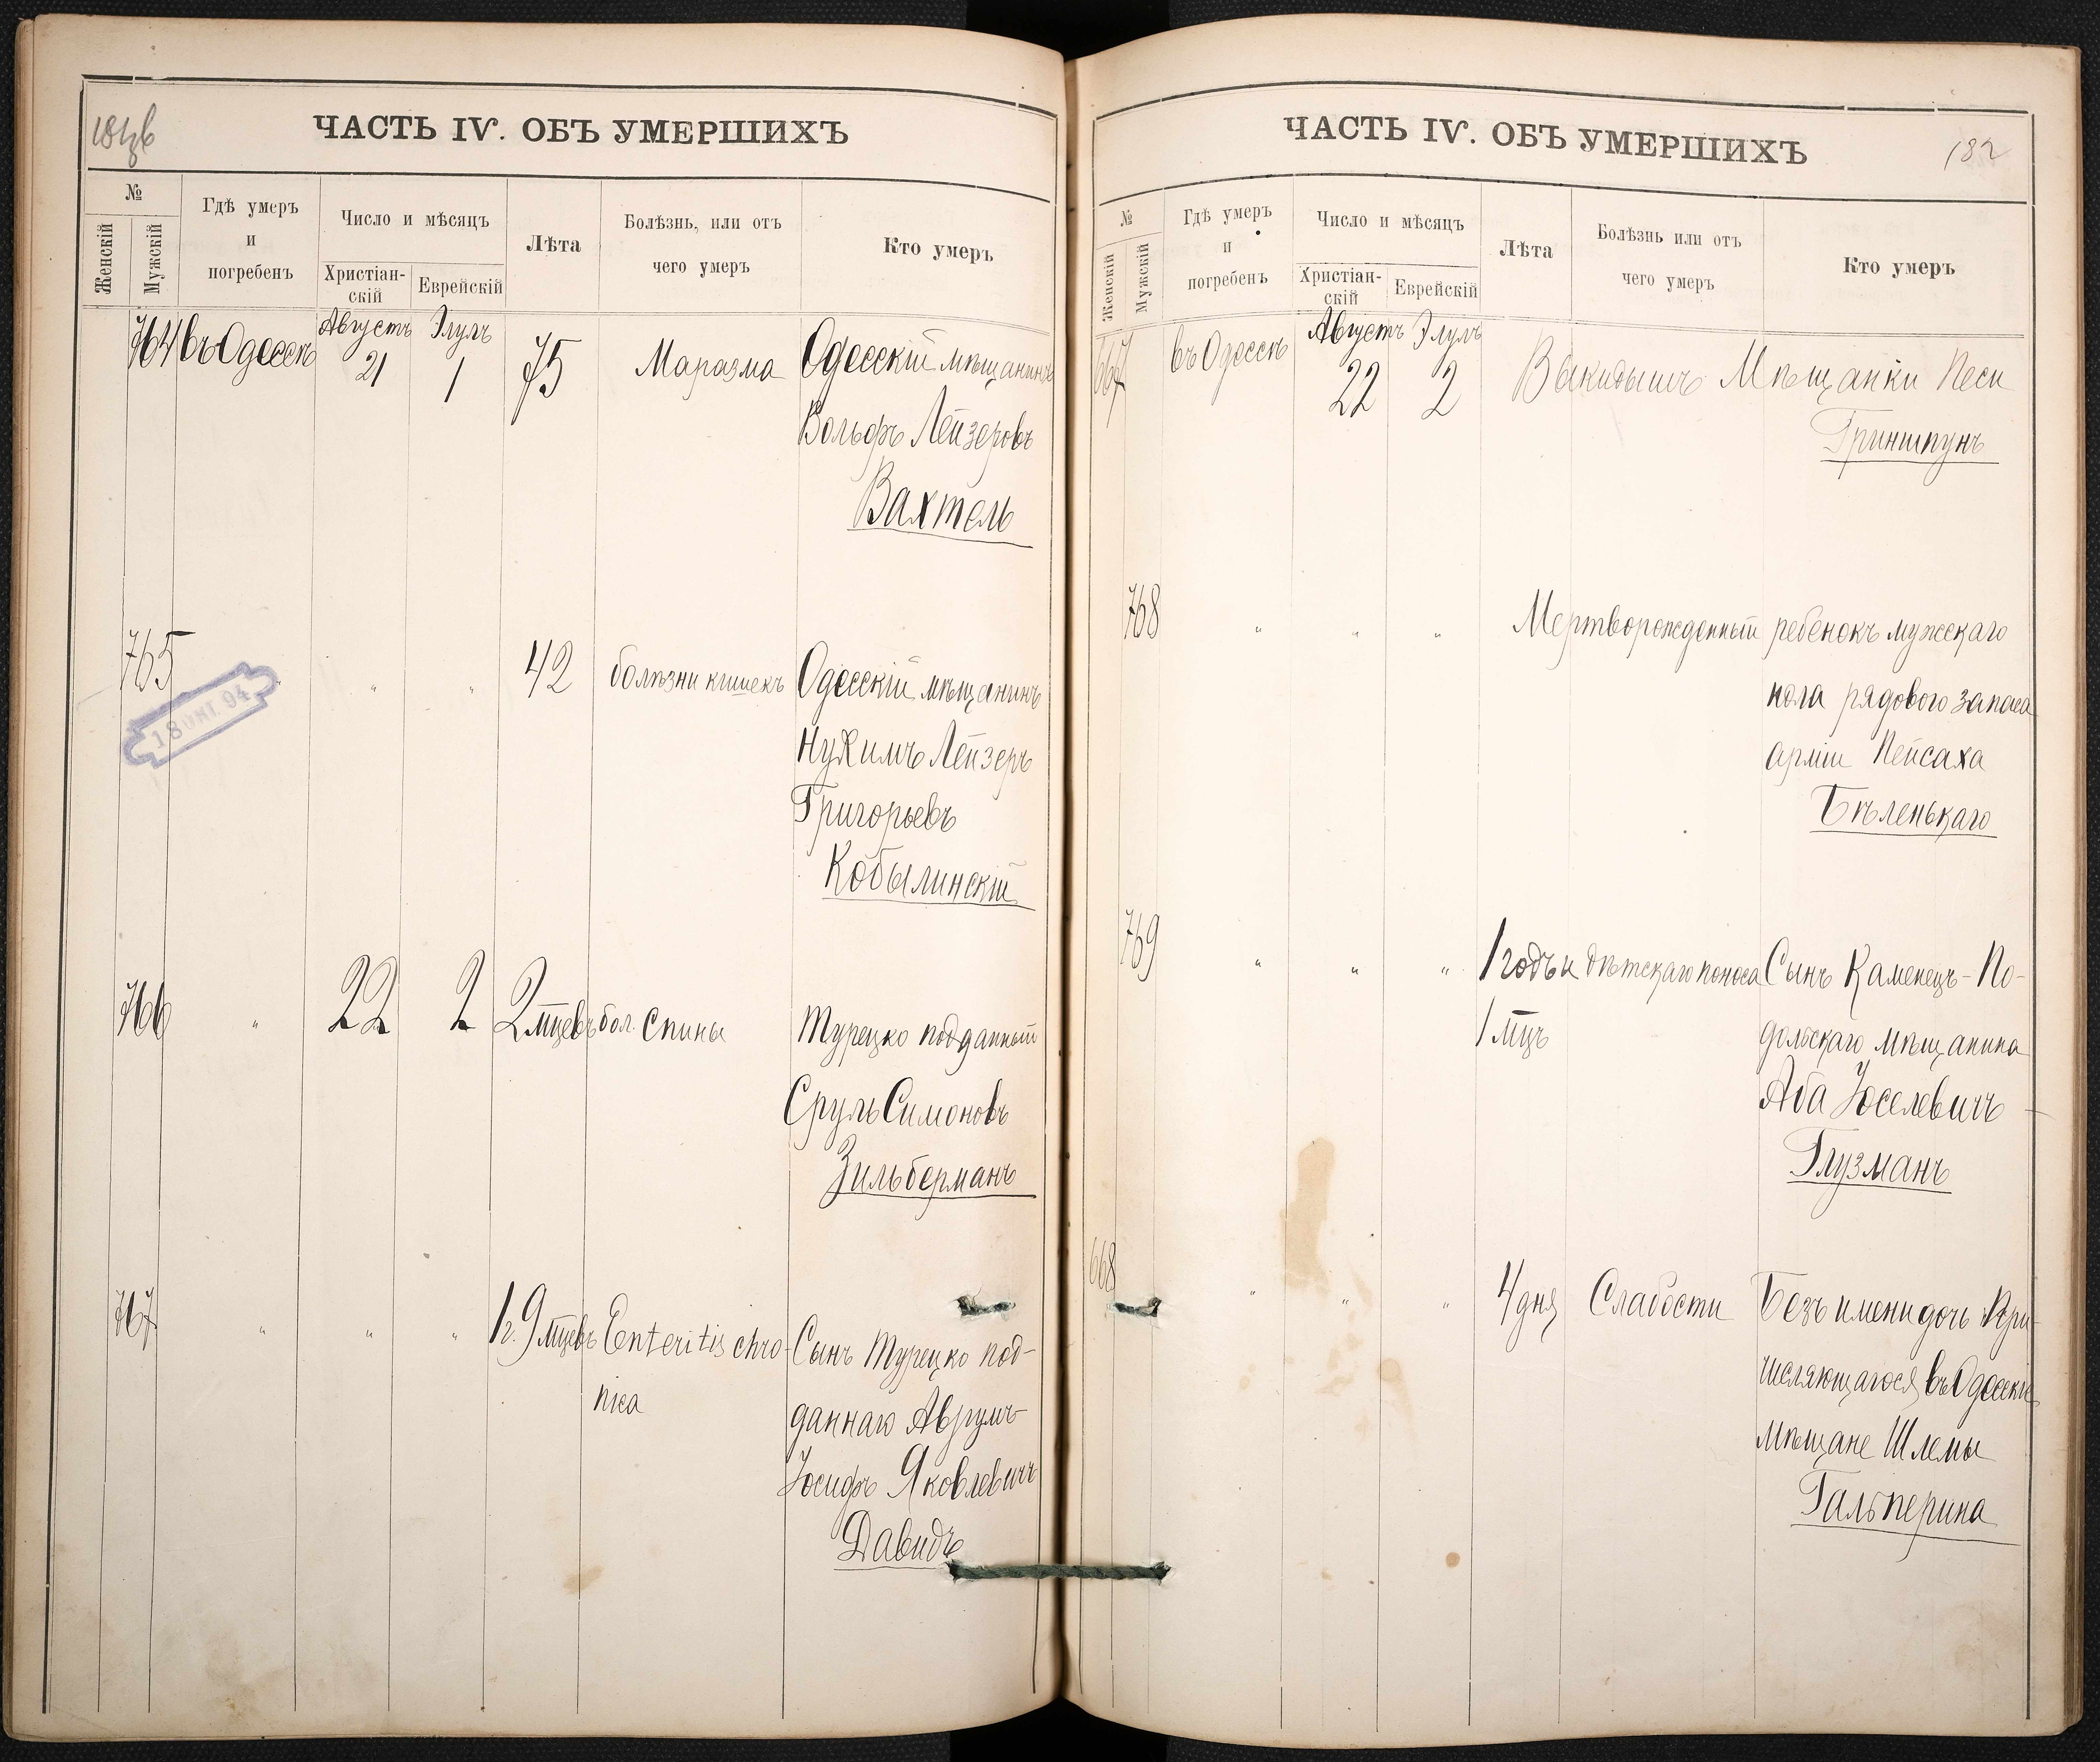 ЧАСТЬ IV. ОБЪ УМЕРШИХЪ
№
Женскій
Мужскій
Гдѣ умеръ
и
погребенъ
Число и мѣсяцъ
Христіан-
скій
Еврейскій
Лѣта
Болѣзнь, или отъ
чего умеръ
Кто умеръ
764 въ Одессѣ Августъ 21 Элулъ 1 75 Маразма Одесскій мѣщанинъ
Вольфъ Лейзеровъ
Вахтель
765 " " " 42 болѣзни кишекъ Одесскій мѣщанинъ
Нухимъ Лейзеръ
Григорьевъ
Кобылинскій
18 ОКТ. 94
766 " 22 2 2 мцевъ бол. спины Турецко подданный
Сруль Симоновъ
Зильберманъ
767 " " " 1 г. 9 мцевъ Enteritis chro- Сынъ Турецко под-
nica даннаго Аврумъ-
Іосифъ Яковлевичъ
Давидъ
ЧАСТЬ IV. ОБЪ УМЕРШИХЪ
182
№
Женскій
Мужскій
Гдѣ умеръ
и
погребенъ
Число и мѣсяцъ
Христіан-
скій
Еврейскій
Лѣта
Болѣзнь или отъ
чего умеръ
Кто умеръ
667 въ Одессѣ Августъ 22 Элулъ 2 Выкидышъ Мѣщанки Песи
Гриншпунъ
768 " " " Мертворожденный ребенокъ мужскаго
пола рядового запаса
арміи Пейсаха
Бѣленькаго
769 " " " 1 годъ и дѣтскаго поноса Сынъ Каменецъ-По-
1 мцъ дольскаго мѣщанина
Аба Іоселевичъ
Глузманъ
668 " " " 4 дня Слабости Безъ имени дочь При-
числяющагося въ Одесскіе
мѣщане Шлемы
Гальперина